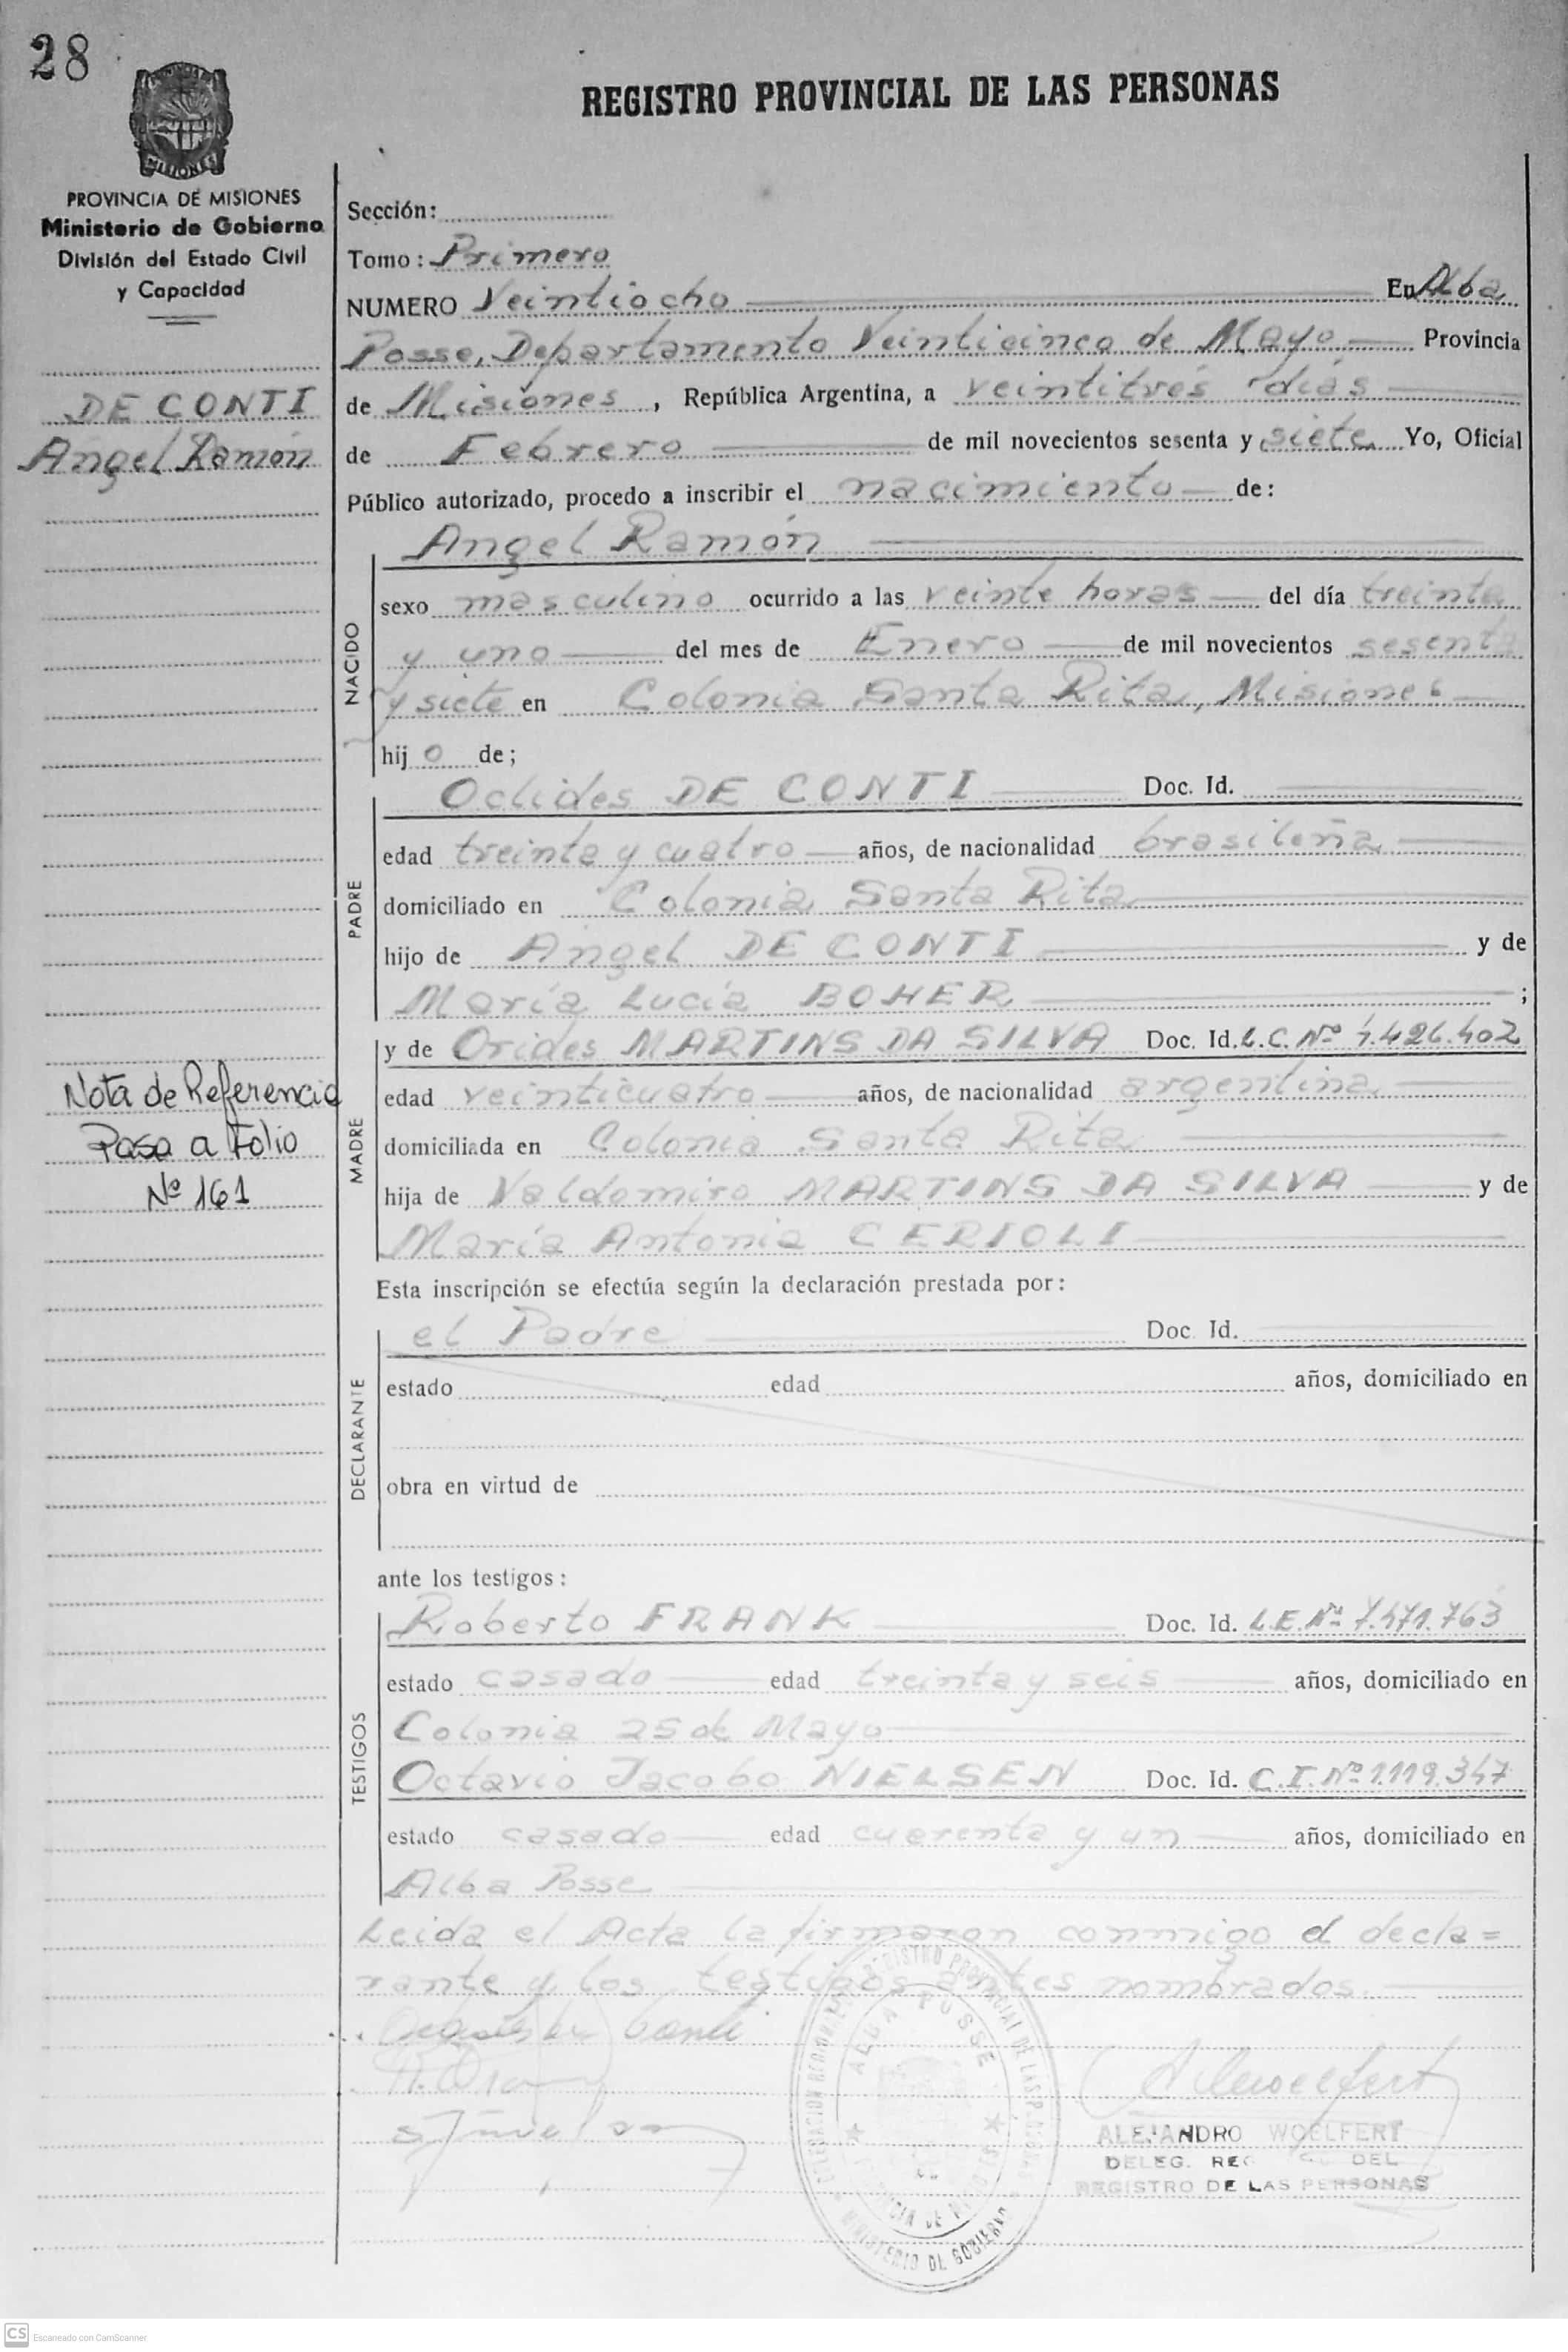 28
MISIONES
PROVINCIA DE MISIONES
Ministerio de Gobierno
División del Estado Civil
y Capacidad
DE CONTI
Angel Ramón
Nota de Referencia
Pasa a Folio
Nº 161
REGISTRO PROVINCIAL DE LAS PERSONAS
Sección:
Tomo: Primero
NUMERO Veintiocho En Alba
Posse, Departamento Veinticinco de Mayo, Provincia
de Misiones, República Argentina, a veintitrés días
de Febrero de mil novecientos sesenta y siete Yo, Oficial
Público autorizado, procedo a inscribir el nacimiento de:
Angel Ramón
NACIDO
sexo masculino ocurrido a las veinte horas del día treinta
y uno del mes de Enero de mil novecientos sesenta
y siete en Colonia Santa Rita, Misiones
hijo de;
PADRE
Oclides DE CONTI Doc. Id.
edad treinta y cuatro años, de nacionalidad brasileña
domiciliado en Colonia Santa Rita
hijo de Angel DE CONTI y de
María Lucía BOHER ;
MADRE
y de Orides MARTINS DA SILVA Doc. Id. L.C. Nº 4.426.402
edad veinticuatro años, de nacionalidad argentina
domiciliada en Colonia Santa Rita
hija de Valdomiro MARTINS DA SILVA y de
María Antonia CERIOLI
Esta inscripción se efectúa según la declaración prestada por:
DECLARANTE
el Padre Doc. Id.
estado edad años, domiciliado en
obra en virtud de
ante los testigos:
TESTIGOS
Roberto FRANK Doc. Id. L.E. Nº 7.471.763
estado casado edad treinta y seis años, domiciliado en
Colonia 25 de Mayo
Octavio Jacobo NIELSEN Doc. Id. C.I. Nº 1.119.347
estado casado edad cuarenta y un años, domiciliado en
Alba Posse
Leida el Acta la firmaron conmigo el decla=
rante y los testigos antes nombrados.
ALBA POSSE
MINISTERIO DE GOBIERNO
ALEJANDRO WOELFERT
DELEG. DEL
REGISTRO DE LAS PERSONAS
CS Escaneado con CamScanner